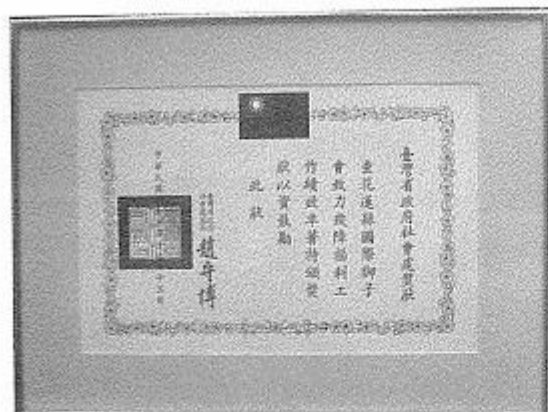 臺灣省政府社會處獎狀
查花蓮縣國際獅子
會致力殘障福利工
作績效卓著特頒獎
狀以資鼓勵
此狀
趙守博
中華民國